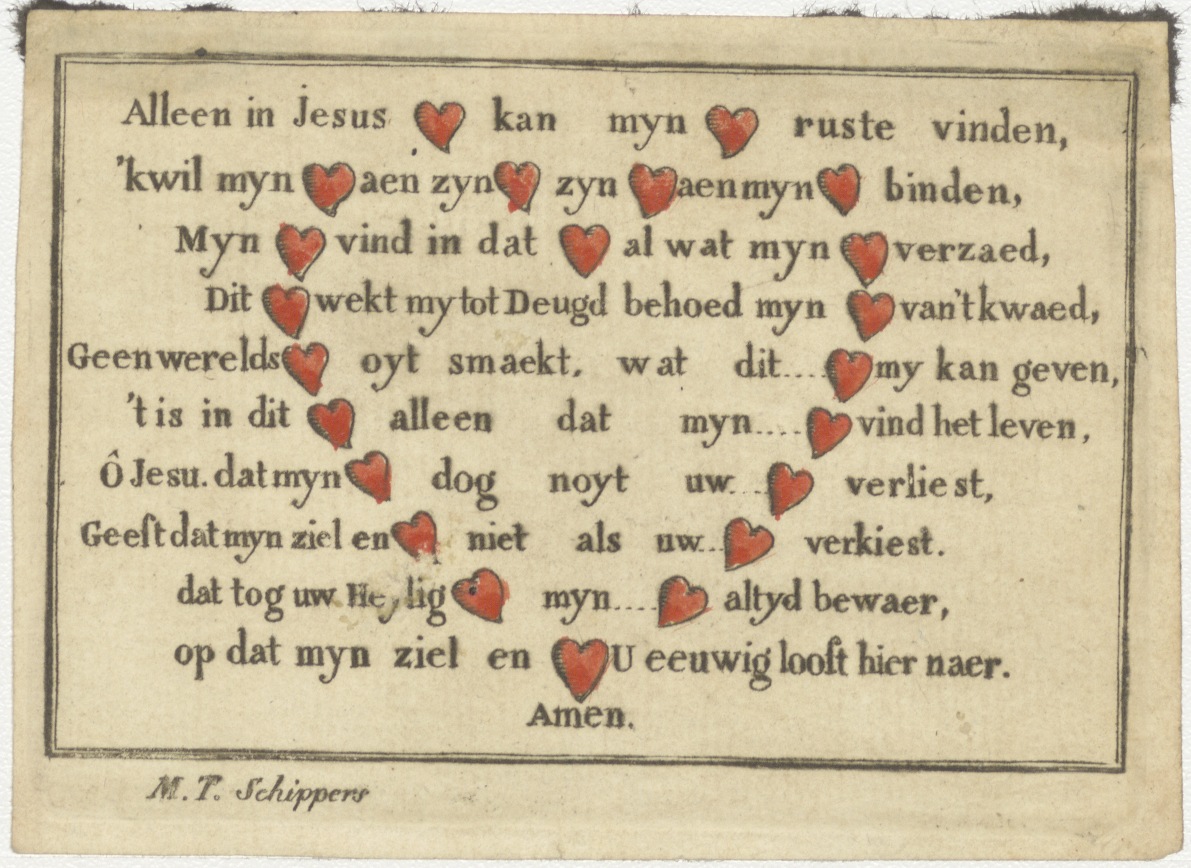 Alleen in Jesus ♥ kan myn ♥ ruste vinden,
'kwil myn ♥ aen zyn ♥ zyn ♥ aen myn ♥ binden,
Myn ♥ vind in dat ♥ al wat myn ♥ verzaed,
Dit ♥ wekt my tot Deugd behoed myn ♥ van't kwaed,
Geen werelds ♥ oyt smaekt, wat dit.... ♥ my kan geven,
't is in dit ♥ alleen dat myn.... ♥ vind het leven,
Ô Jesu. dat myn ♥ dog noyt uw... ♥ verliest,
Geeft dat myn ziel en ♥ niet als uw... ♥ verkiest.
dat tog uw Heylig ♥ myn.... ♥ altyd bewaer,
op dat myn ziel en ♥ U eeuwig looft hier naer.
Amen.
M. T. Schippers